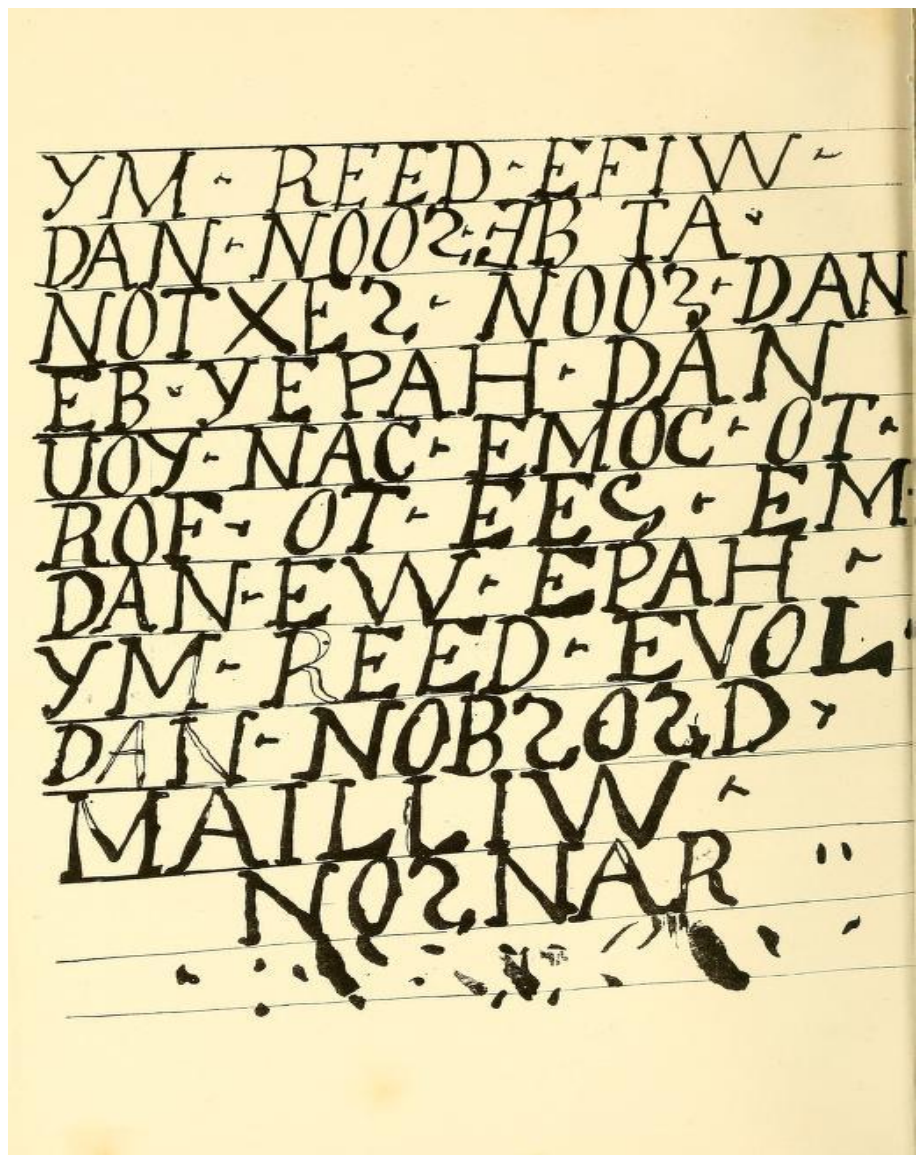 YM - REED - EFIW -
DAN - NOOS - EB TA -
NOTXES - NOOS - DAN
EB - YEPAH - DAN
UOY - NAC - EMOC - OT -
ROF - OT - EES - EM
DAN - EW - EPAH -
YM - REED - EVOL -
DAN - NOBSOSD -
MAILLIW -
NOSNAR "